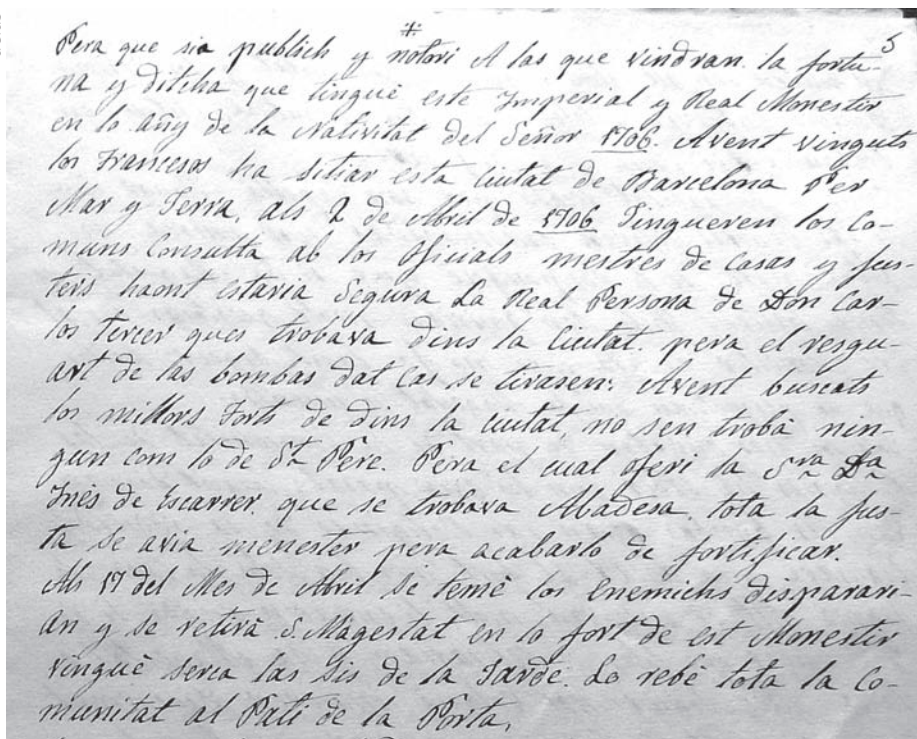 5
Pera que sia publich y notori A las que vindran. la fortu-
na y ditcha que tingué este Imperial y Real Monestir
en lo añy de la Nativitat del Señor 1706. Avent vinguts
los Francesos ha sitiar esta Ciutat de Barcelona Per
Mar y Terra, als 2 de Abril de 1706 Tingueren los Co-
muns Consulta ab los Oficials mestres de Casas y fus-
ters haont estaria Segura La Real Persona de Don Car-
los tercer ques trobava dins la Ciutat. pera el resgu-
art de las bombas dat cas se tirasen: Avent buscats
los millors Forts de dins la ciutat, no sen trobà nin-
gun com lo de St. Pere. Pera el cual oferi la Sra Da
Inés de Escarrer. que se trobava Abadesa, tota la fus-
ta se avia menester pera acabarlo de fortificar.
Als 17 del Mes de Abril se temè los Enemichs disparari-
an y se retirà S. Magestat en lo fort de est Monestir
vinguè serca las sis de la Tarde. Lo rebè tota la Co-
munitat al Pati de la Porta,